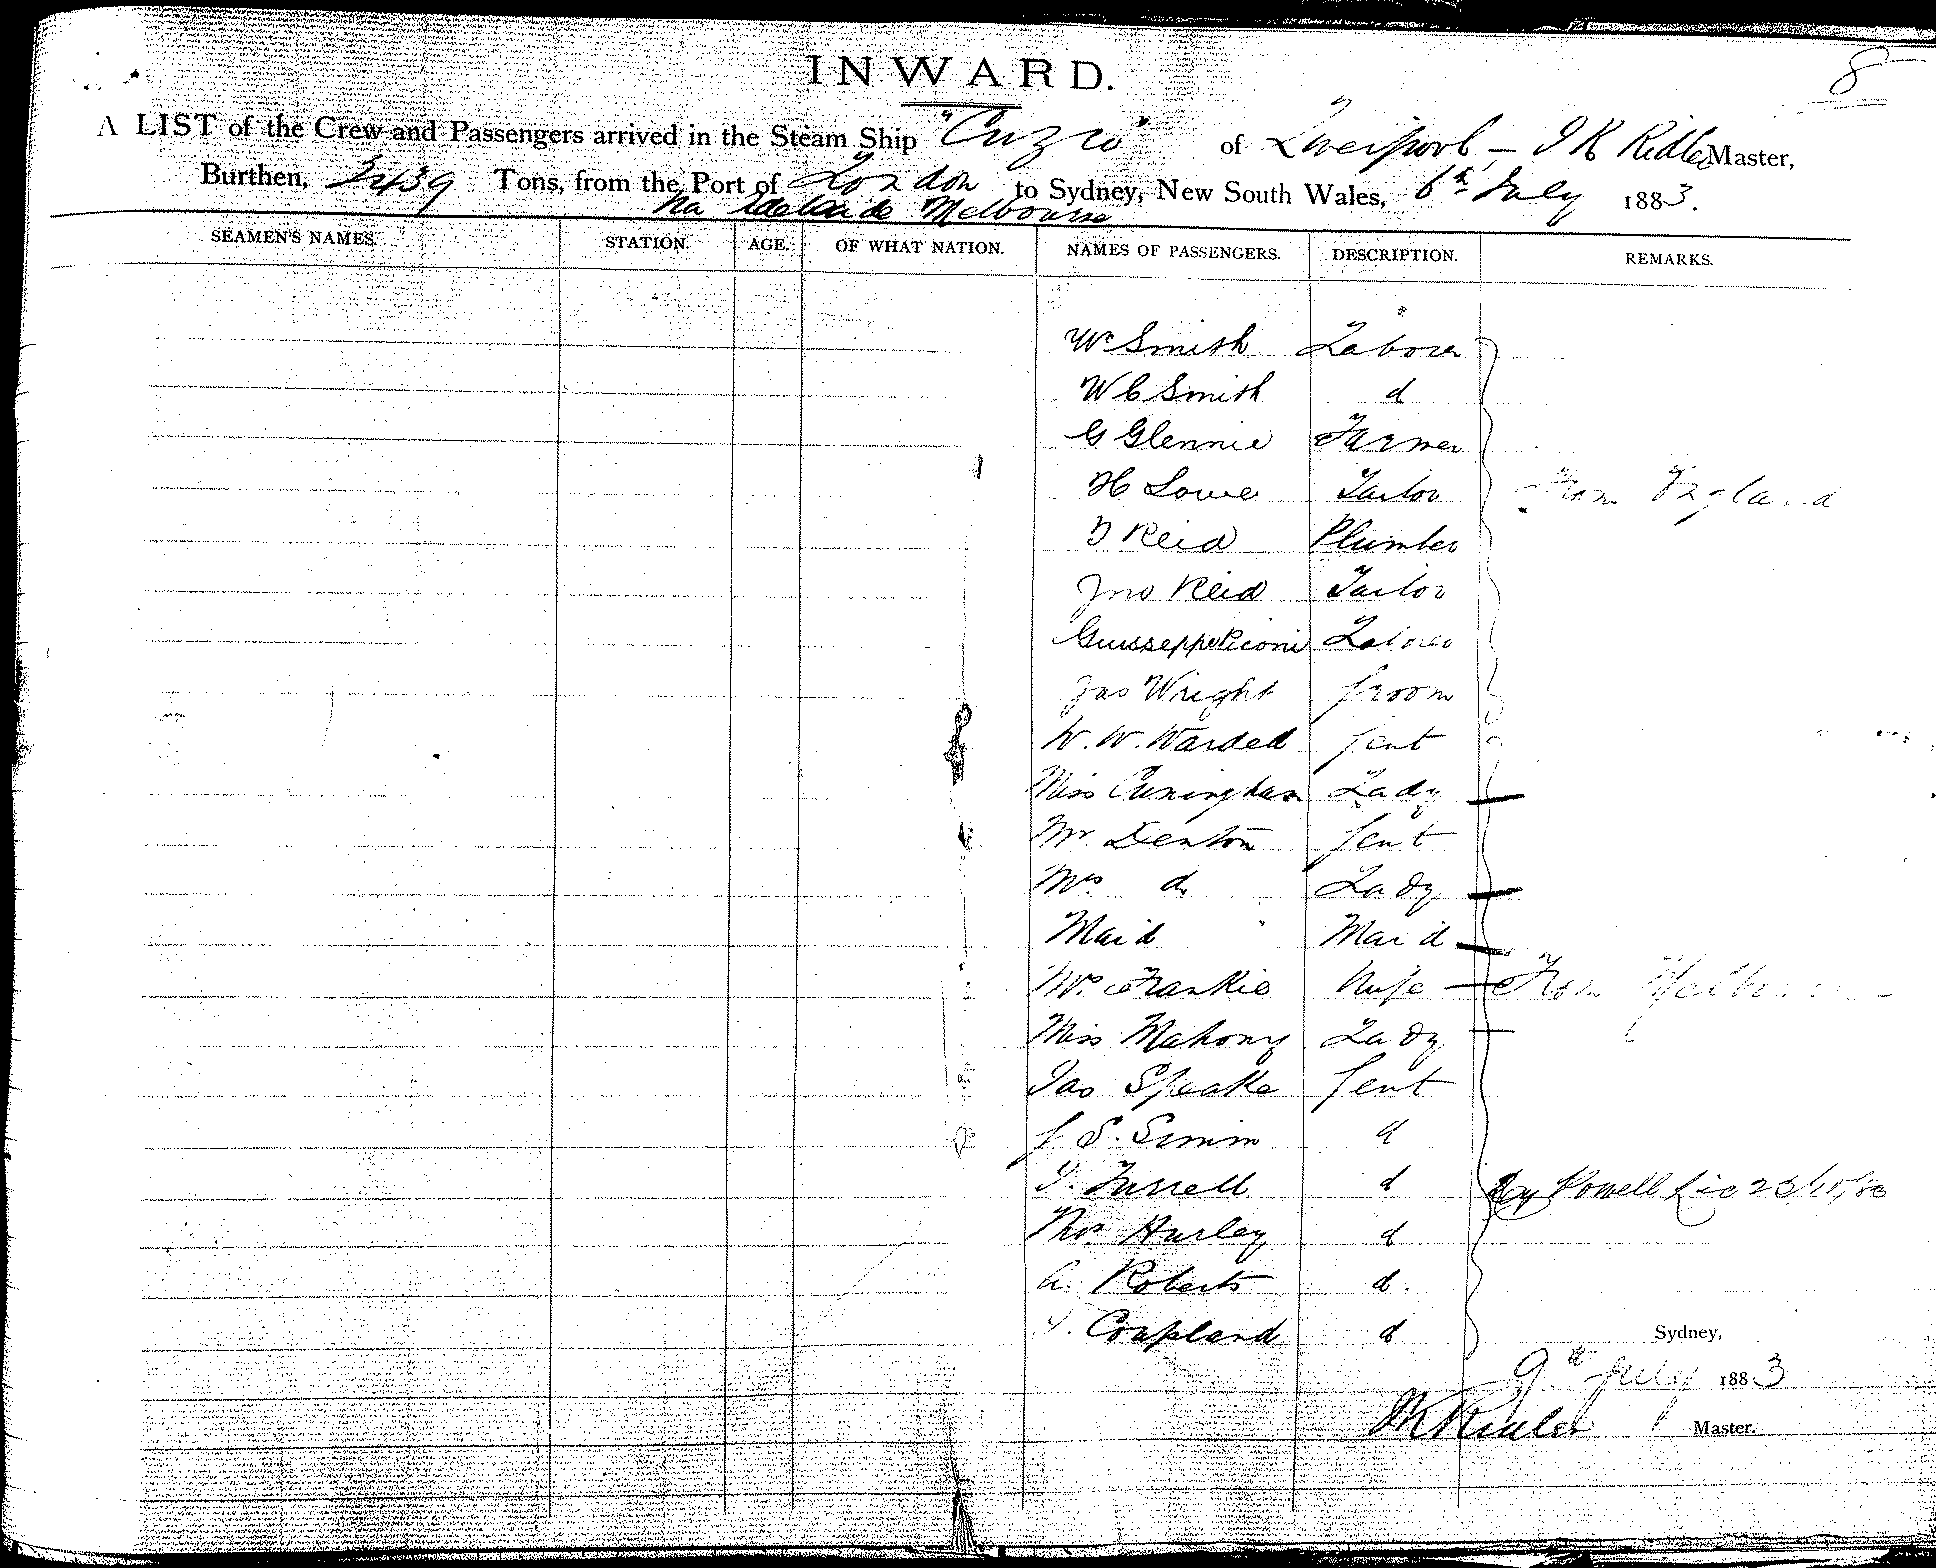 8
INWARD.
A LIST of the Crew and Passengers arrived in the Steam Ship "Cuzco" of Liverpool, J K Ridler Master,
Burthen, 2439 Tons, from the Port of London to Sydney, New South Wales, 6th July 1883.
Via Adelaide Melbourne
SEAMEN'S NAMES. STATION. AGE. OF WHAT NATION. NAMES OF PASSENGERS. DESCRIPTION. REMARKS.
Wm Smith Laborer
W C Smith d
G Glennie Farmer
H Lowe Tailor From England
D Reid Plumber
Jno Reid Tailor
Guisseppe Picone Laborer
Jas Wright Groom
W. W. Warded Gent
Miss Cuningham Lady
Mr Denton Gent
Mrs d Lady
Maid Maid
Mrs Frankie Wife From Melbourne
Miss Mahony Lady
Jas Speake Gent
J S. Simm d
J. Turrell d Powell
Thos Hurley d
A. Roberts d.
Coupland d
Sydney,
9th July 1883
J K Ridler Master.